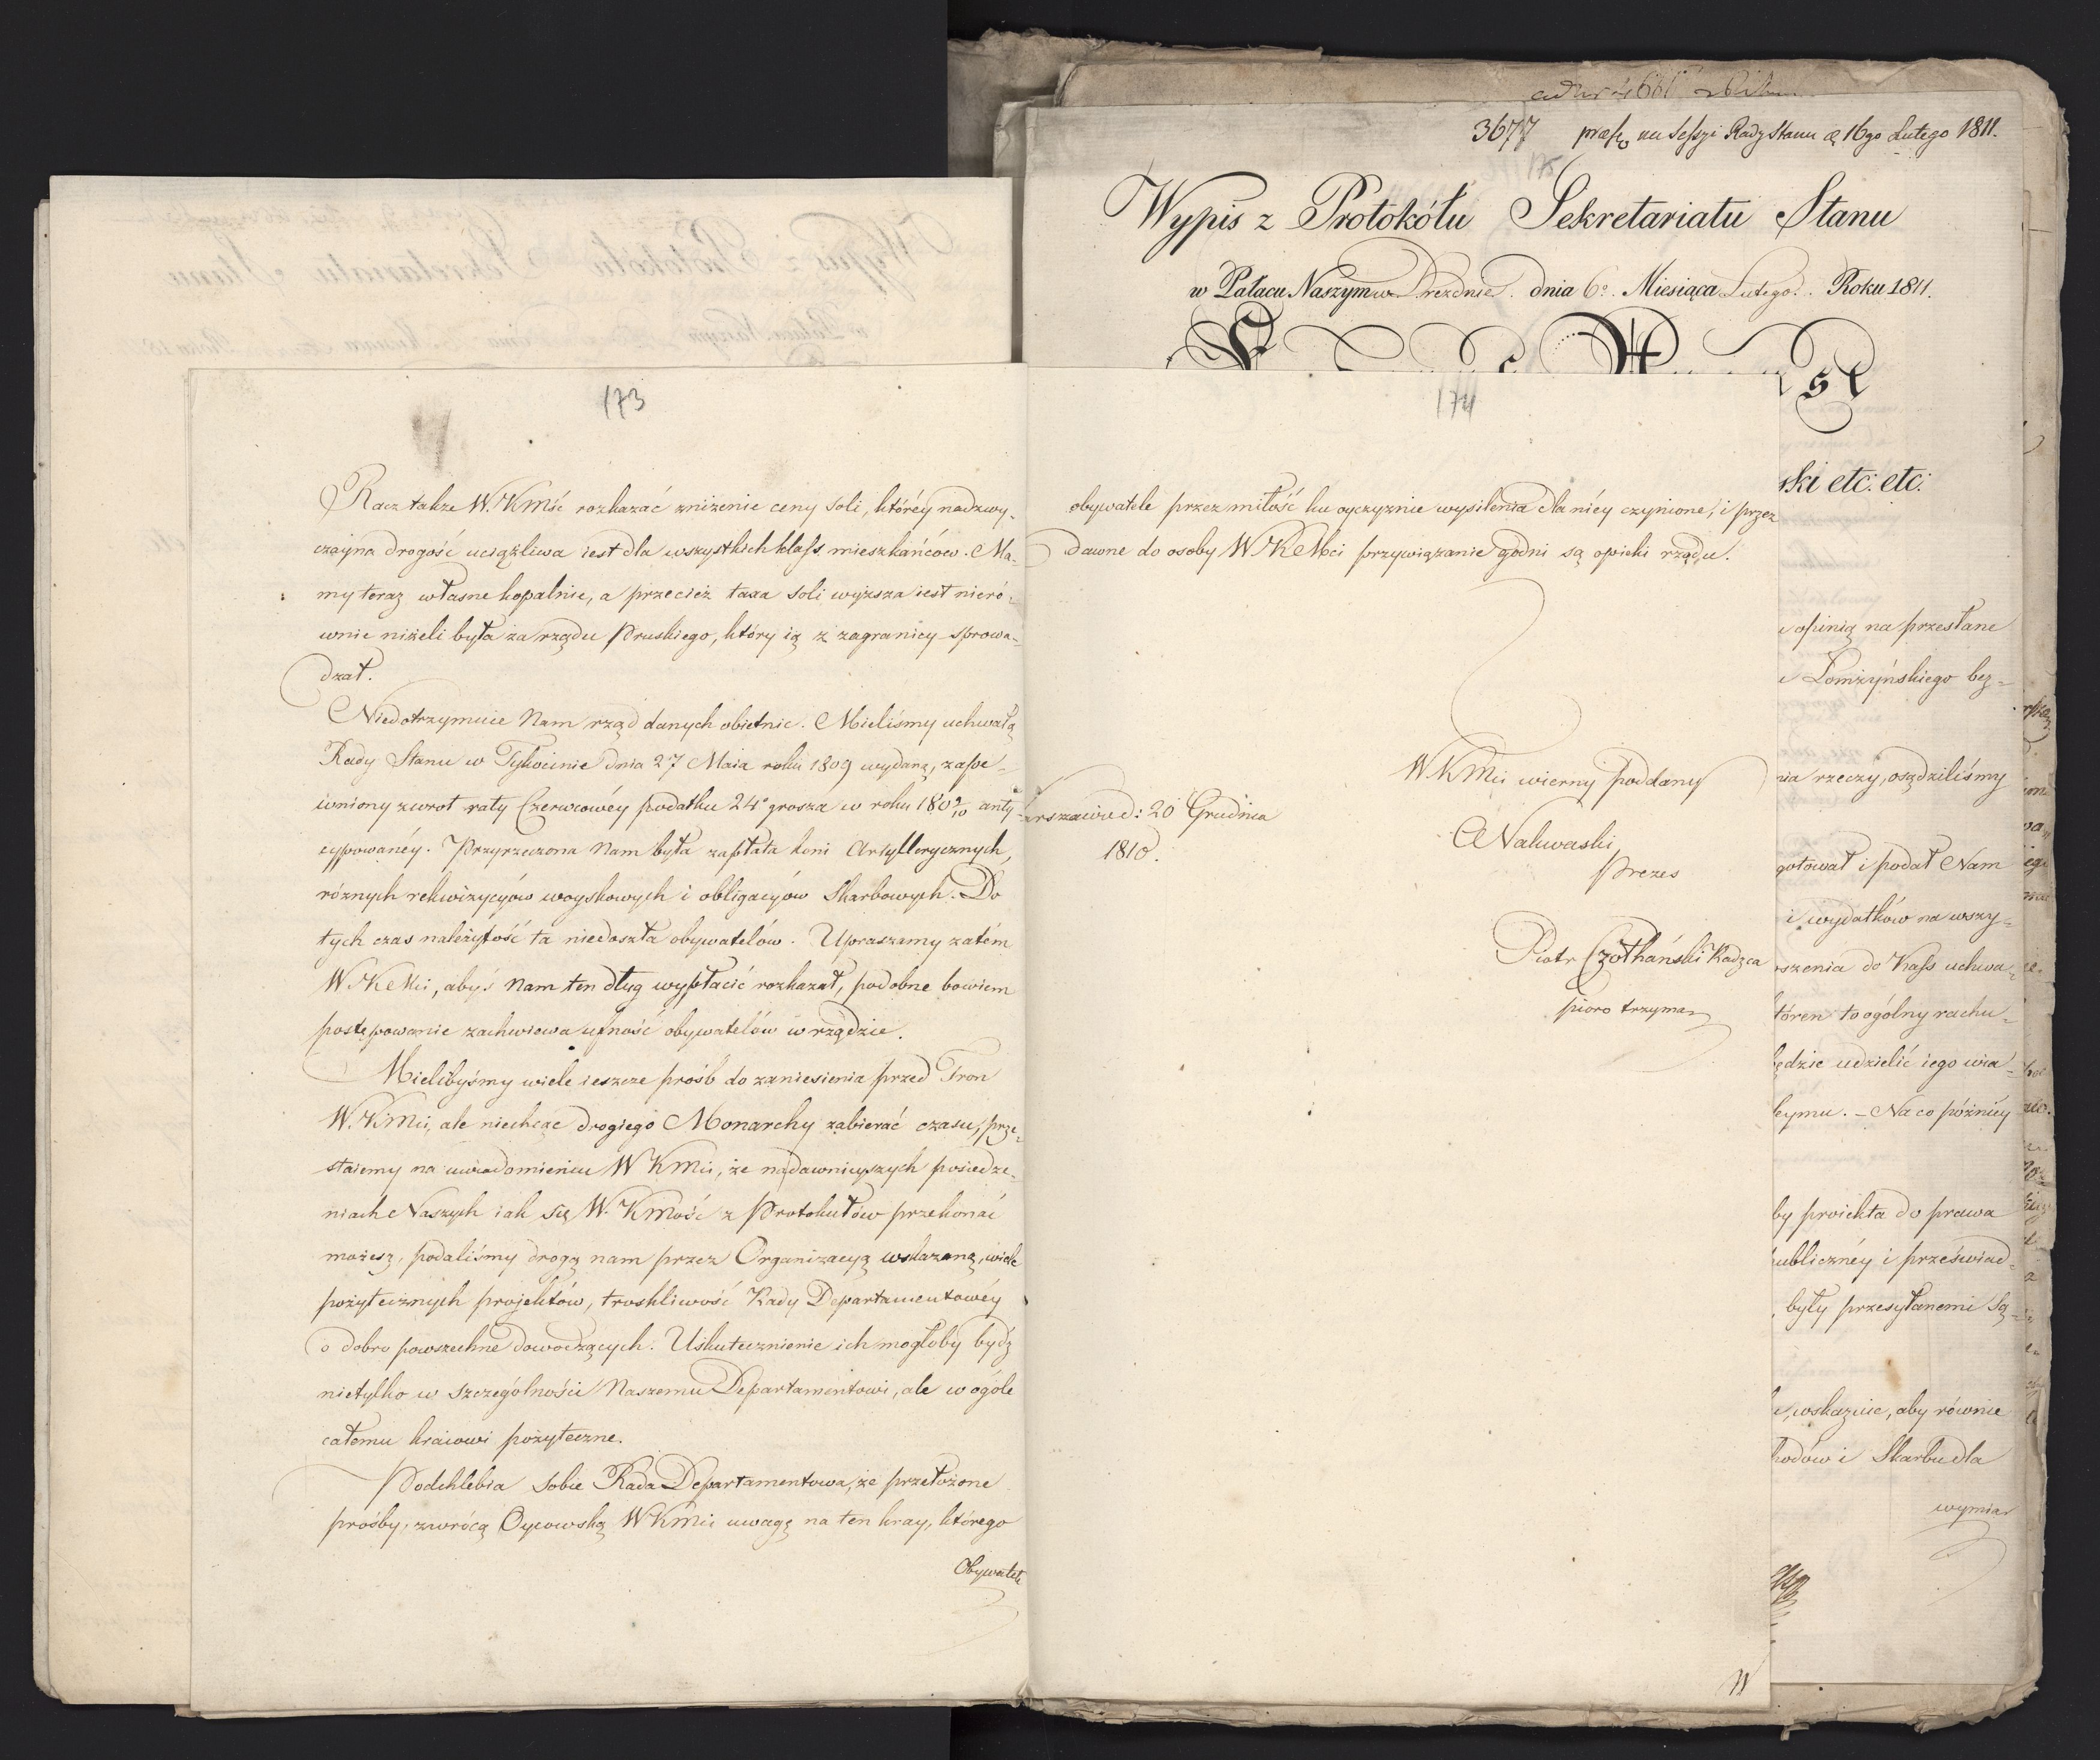 173
Racz także W. K Mść rozkazać zniżenie ceny soli, któréy nadzwy-
czayna drogość uciążliwa iest dla wszystkich klass mieszkańców. Ma-
my teraz własne kopalnie, a przecież taxa soli wyższa iest nieró-
wnie niżeli była za rządu Pruskiego, który ią z zagranicy sprowa-
dzał.
Niedotrzymuie Nam rząd danych obietnic. Mieliśmy uchwałą
Rady Stanu w Tykocinie dnia 27 Maia roku 1809 wydaną, zape-
wniony zwrot raty Czerwcowéy podatku 24° grosza w roku 1809/10 anty-
cypowanéy. Przyrzeczona Nam była zapłata koni Artyllerycznych,
róznych rekwizycyów woyskowych i obligacyów Skarbowych. Do
tych czas należytość ta niedoszła obywatelów. Upraszamy zatém
W K Mci, abyś Nam ten dług wypłacić rozkazał, podobne bowiem
postępowanie zachwiewa ufność obywatelów w rządzie.
Mielibyśmy wiele ieszcze prośb do zaniesienia przed Tron
W. K Mci, ale niechcąc drogiego Monarchy zabierać czasu, prze-
staiemy na uwiadomieniu W K Mci, że na dawnieyszych posiedze-
niach Naszych iak się W. K Mość z Protokułów przekonać
możesz, podaliśmy drogą nam przez Organizacyą wskazaną, wiele
pożytecznych projektów, troskliwość Rady Departamentowéy
o dobro powszechne dowodzących. Uskutecznienie ich mogłoby bydź
nietylko w szczególności Naszemu Departamentowi, ale w ogóle
całemu kraiowi pożyteczne.
Podchlebia sobie Rada Departamentowa, że przełożone
prośby, zwrócą Oycowską W K Mci uwagę na ten kray, którego
Obywatele
174
obywatele przez miłość ku oyczyznie wysilenia dla niéy czynione, i przez
dawne do osoby W K Mci przywiązanie godni są opieki rządu.
W K Mci wierny poddany
rszawie d: 20 Grudnia
1810.
A Nakwaski
Prezes
Piotr Czołhański Radzca
pioro trzymaz
3677 na Sessyi Rady Stanu d 16go Lutego 1811.
175
Wypis z Protokółu Sekretariatu Stanu
w Pałacu Naszym w Dreznie dnia 6°. Miesiąca Lutego. Roku 1811.
ski etc: etc:
opinią na przesłane
Łomżyńskiego bez=
nia rzeczy, osądziliśmy
gotował i podał Nam
i wydatków na wszy=
szenia do Kass uchwa=
tóren to ogólny rachu=
ędzie udzielić iego wia=
eymu. - Na co późniéy
by proiekta do prawa
ublicznéy i przeświad=
były przesyłanemi Są=
wskazuie, aby równie
hodów i Skarbu dla
wymiar